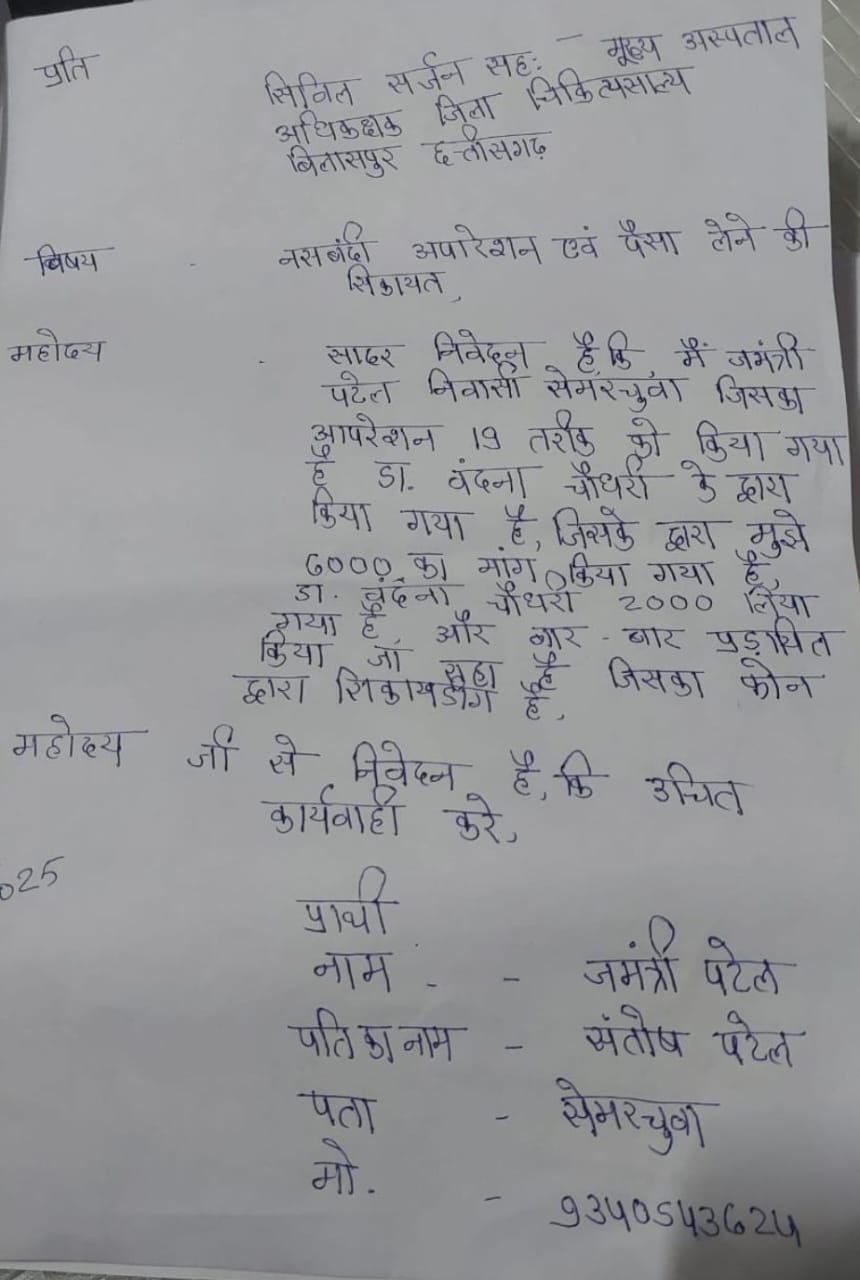 प्रति
सिविल सर्जन सह: - मूख्य अस्पताल
अधिकक्षक जिला चिकित्यसाल्य
बिलासपुर छत्तीसगढ़
बिषय - नसबंदी अपारेशन एवं पैसा लेने की
सिकायत,
महोदय - सादर निवेदन है,कि, मैं जमंत्री
पटेल निवासी सेमरचुवा जिसका
आपरेशन 19 तरीक को किया गया
है डा. वंदना चौधरी के द्वारा
किया गया है, जिसके द्वारा मुझे
6000 का मांग किया गया है,
डा. वंदना चौधरी 2000 लिया
गया है, और बार - बार
किया जा रहा है जिसका फोन
द्वारा है,
महोदय जी से निवेदन है, कि उचित
कार्यवाही करे,
025
प्रार्थी
नाम - - जमंत्री पटेल
पति का नाम - संतोष पटेल
पता - सेमरचुवा
मो. - 9340543624